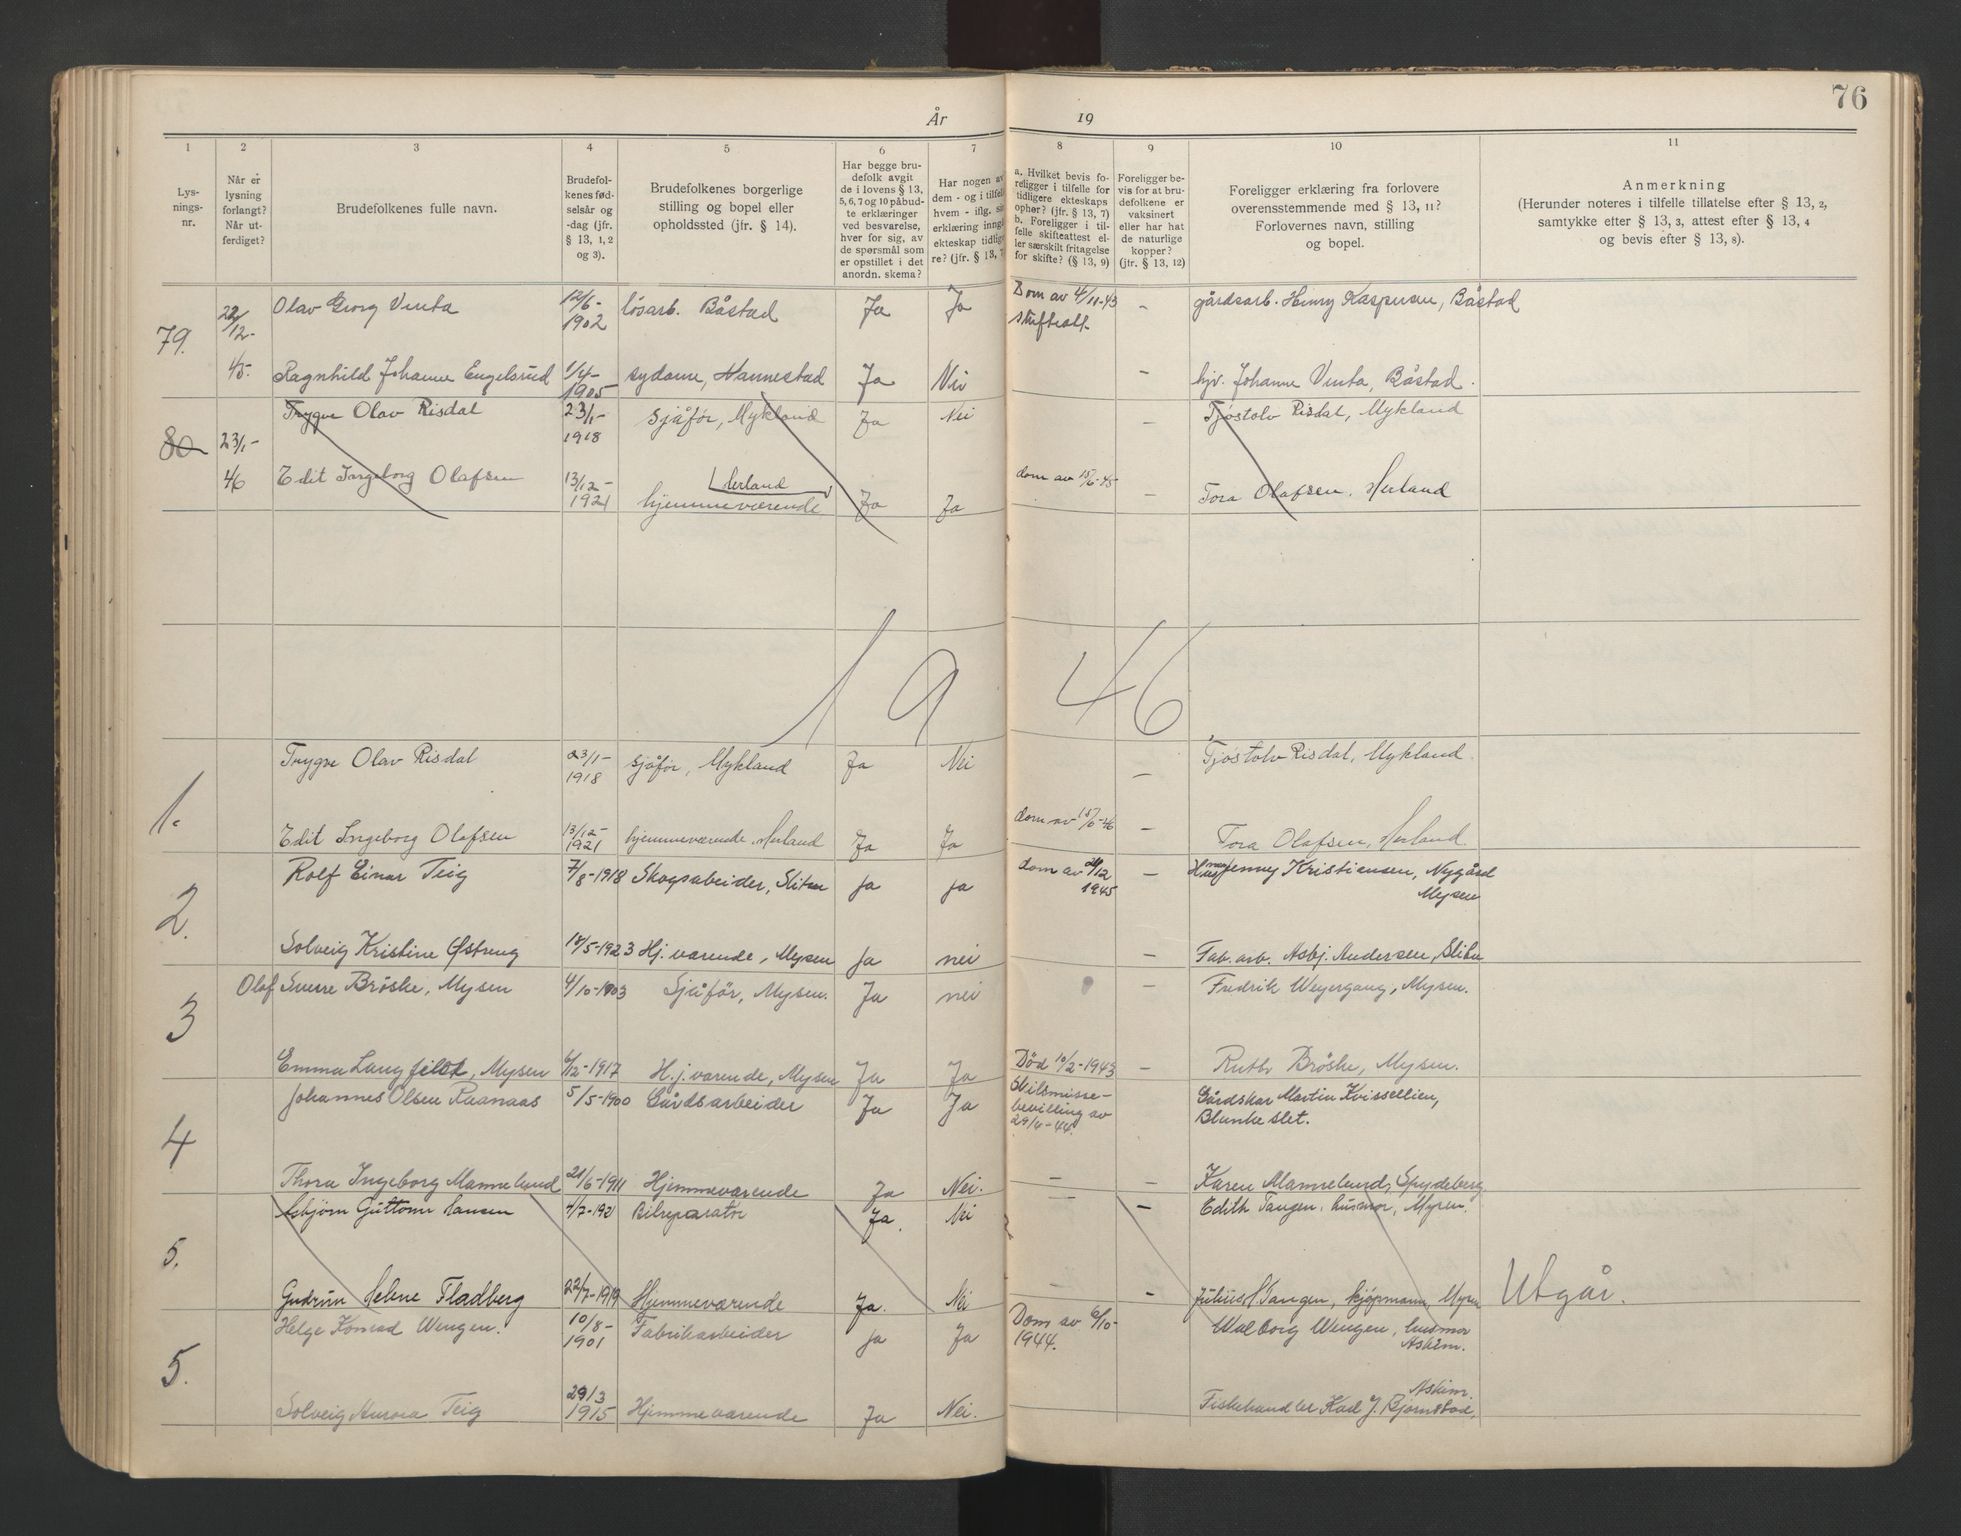 76
År 19
1 2 3 4 5 6 7 8 9 10 11
Lys-
nings-
nr.
Når er
lysning
forlangt?
Når ut-
ferdiget?
Brudefolkenes fulle navn.
Brudefol-
kenes fød-
selsår og
-dag (jfr.
§ 13, 1, 2
og 3).
Brudefolkenes borgerlige
stilling og bopel eller
opholdssted (jfr. § 14).
Har begge bru-
defolk avgit
de i lovens § 13,
5, 6, 7 og 10 påbud-
te erklæringer
ved besvarelse,
hver for sig, av
de spørsmål som
er opstillet i det
anordn. skema?
Har nogen av
dem - og i tilfelle
hvem - iflg. sin
erklæring inngå
ekteskap tidlige
re? (jfr. § 13, 7
a. Hvilket bevis fo-
religger i tilfelle for
tidligere ekteskaps
ophør? (jfr. § 13, 7)
b. Foreligger i til-
felle skifteattest el-
ler særskilt fritagelse
for skifte? (§ 13, 9)
Foreligger be-
vis for at bru-
defolkene er
vaksinert
eller har hat
de naturlige
kopper?
(jfr. § 13, 12)
Foreligger erklæring fra forlovere
overensstemmende med § 13, 11?
Forlovernes navn, stilling
og bopel.
Anmerkning
(Herunder noteres i tilfelle tillatelse efter § 13, 2,
samtykke efter § 13, 3, attest efter § 13, 4
og bevis efter § 13, 8).
79. 22/12- Olav Georg Vinta 12/6-1902 løsarb. Båstad Ja Ja Dom av 4/11-43 skifteatt. - gårdsarb. Henry Kaspersen, Båstad
45. Ragnhild Johanne Engelsrud 1/4-1905 sydame, Hannestad Ja Nei - hjv. Johanne Vinta, Båstad.
80 23/1- Trygve Olav Risdal 23/1-1918 sjåfør, Mykland Ja Nei - Tjøstolv Risdal, Mykland
46 Edit Ingeborg Olafsen 13/12-1921 hjemmeværende Herland Ja Ja dom av 15/6-45 - Tora Olafsen, Herland
1946
1. Trygve Olav Risdal 23/1-1918 sjåfør, Mykland Ja Nei - Tjøstolv Risdal, Mykland.
Edit Ingeborg Olafsen 13/12-1921 hjemmeværende, Herland Ja Ja dom av 15/6-46 - Tora Olafsen, Herland.
2. Rolf Einar Teig 7/8-1918 Skogsabeider, Slitu Ja Ja dom av 20/12 1945 - Husmor Jenny Kristiensen, Nygård Mysen
Solveig Kristine Østreng 18/5-1923 Hj. værende, Mysen Ja nei - Fab. arb. Asbj. Andersen, Slitu
3 Olaf Sverre Brøske, Mysen 4/10-1903 Sjåfør, Mysen. Ja nei - Fredrik Weyergang, Mysen.
Emma Langfeldt, Mysen 6/12-1917 H.j. værende, Mysen Ja Ja Død 10/2-1943 - Ruth Brøske, Mysen.
4 Johannes Olsen Raanaas 5/5-1900 Gårdsarbeider Ja Ja Skilsmisse-
bevilling av
29/4-44. Gårdskar Martin Kvissellien,
Blunke slet.
Thora Ingeborg Mannelund 21/6-1911 Hjemmeværende Ja Nei. - - Karen Mannelund, Spydeberg.
5. Asbjørn Guttorm Hansen 4/7-192 Bilreparatør Ja. Nei - - Edith Tangen, husmor, Mysen.
Gudrun Helene Fladberg 22/7-1919 Hjemmeværende Ja. Nei - - Julius H Tangen, kjøpmann, Mysen Utgår.
5. Helge Konrad Wengen. 10/8-1901 Fabrikarbeider Ja Ja Dom av 6/10-1944. Walborg Wengen, husmor Askim.
Solveig Aurora Teig 29/3 1915 Hjemmeværende Ja Nei. Fiskehandler Karl J. Bjørnstad, Askim.